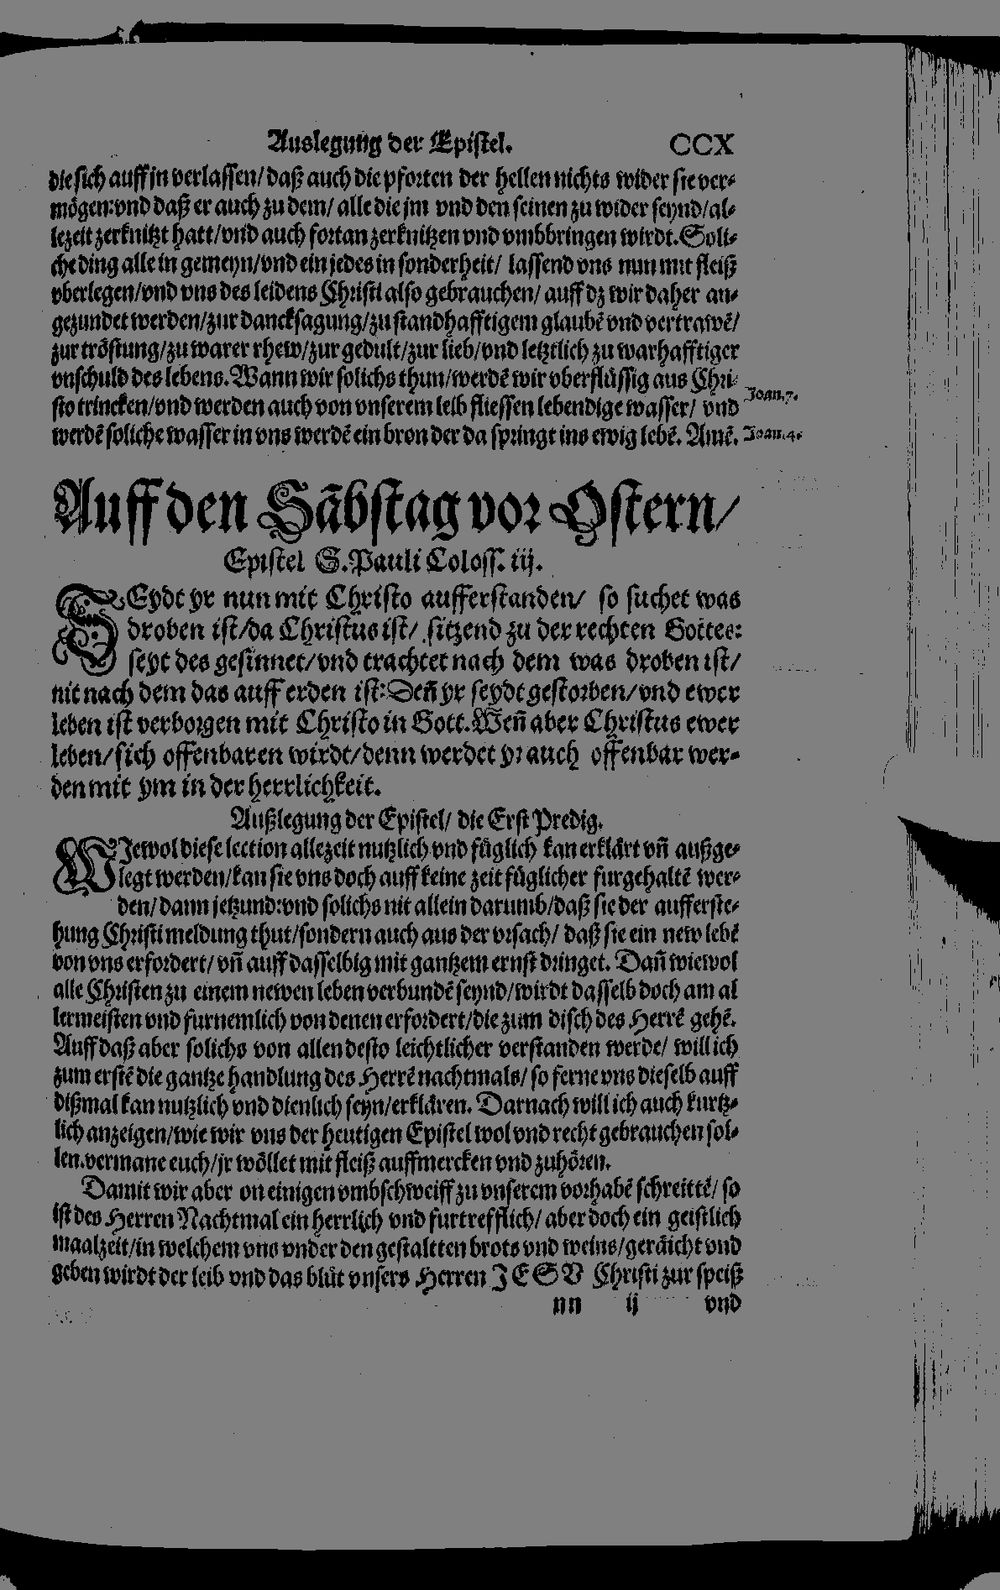 Auslegung der Epistel. CCX
die sich auff jn verlassen/ daß auch die pforten der hellen nichts wider sie ver-
mögen: vnd daß er auch zu dem/ alle die jm vnd den seinen zu wider seynd/ al-
lezeit zerknitzt hatt/ vnd auch fortan zerknitzen vnd vmbbringen wirdt. Soli-
che ding alle in gemeyn/ vnd ein jedes in sonderheit/ lassend vns nun mit fleiß
vberlegen/ vnd vns des leidens Christi also gebrauchen/ auff dz wir daher an-
gezundet werden/ zur dancksagung/ zu standhafftigem glaubē vnd vertrawē/
zur tröstung/ zu warer rhew/ zur gedult/ zur lieb/ vnd letztlich zu warhafftiger
vnschuld des lebens. Wann wir solichs thun/ werdē wir vberflüssig aus Chri-
sto trincken/ vnd werden auch von vnserem leib fliessen lebendige wasser/ vnd
Joan. 7.
werdē soliche wasser in vns werdē ein bron der da springt ins ewig lebē. Amē.
Joan. 4.
Auff den Sābstag vor Ostern/
Epistel S. Pauli Coloss. iij.
SEydt yr nun mit Christo aufferstanden/ so suchet was
droben ist/ da Christus ist/ sitzend zu der rechten Gottes:
seyt des gesinnet/ vnd trachtet nach dem was droben ist/
nit nach dem das auff erden ist: Deñ yr seydt gestorben/ vnd ewer
leben ist verborgen mit Christo in Gott. Weñ aber Christus ewer
leben/ sich offenbaren wirdt/ denn werdet yr auch offenbar wer-
den mit ym in der herrlichkeit.
Außlegung der Epistel/ die Erst Predig.
WIewol diese lection allezeit nutzlich vnd füglich kan erklärt vñ außge-
legt werden/ kan sie vns doch auff keine zeit füglicher furgehaltē wer-
den/ dann jetzund: vnd solichs nit allein darumb/ daß sie der aufferste-
hung Christi meldung thut/ sondern auch aus der vrsach/ daß sie ein new lebē
von vns erfordert/ vñ auff dasselbig mit gantzem ernst dringet. Dañ wiewol
alle Christen zu einem newen leben verbundē seynd/ wirdt dasselb doch am al
lermeisten vnd furnemlich von denen erfordert/ die zum disch des Herrē gehē.
Auff daß aber solichs von allen desto leichtlicher verstanden werde/ will ich
zum erstē die gantze handlung des Herrē nachtmals/ so ferne vns dieselb auff
dißmal kan nutzlich vnd dienlich seyn/ erklären. Darnach will ich auch kurtz-
lich anzeigen/ wie wir vns der heutigen Epistel wol vnd recht gebrauchen sol-
len. vermane euch/ jr wöllet mit fleiß auffmercken vnd zuhören.
Damit wir aber on einigen vmbschweiff zu vnserem vorhabē schreittē/ so
ist des Herren Nachtmal ein herrlich vnd furtrefflich/ aber doch ein geistlich
maalzeit/ in welchem vns vnder den gestaltten brots vnd weins/ geräicht vnd
geben wirdt der leib vnd das blůt vnsers Herren JESV Christi zur speiß
nn ij vnd